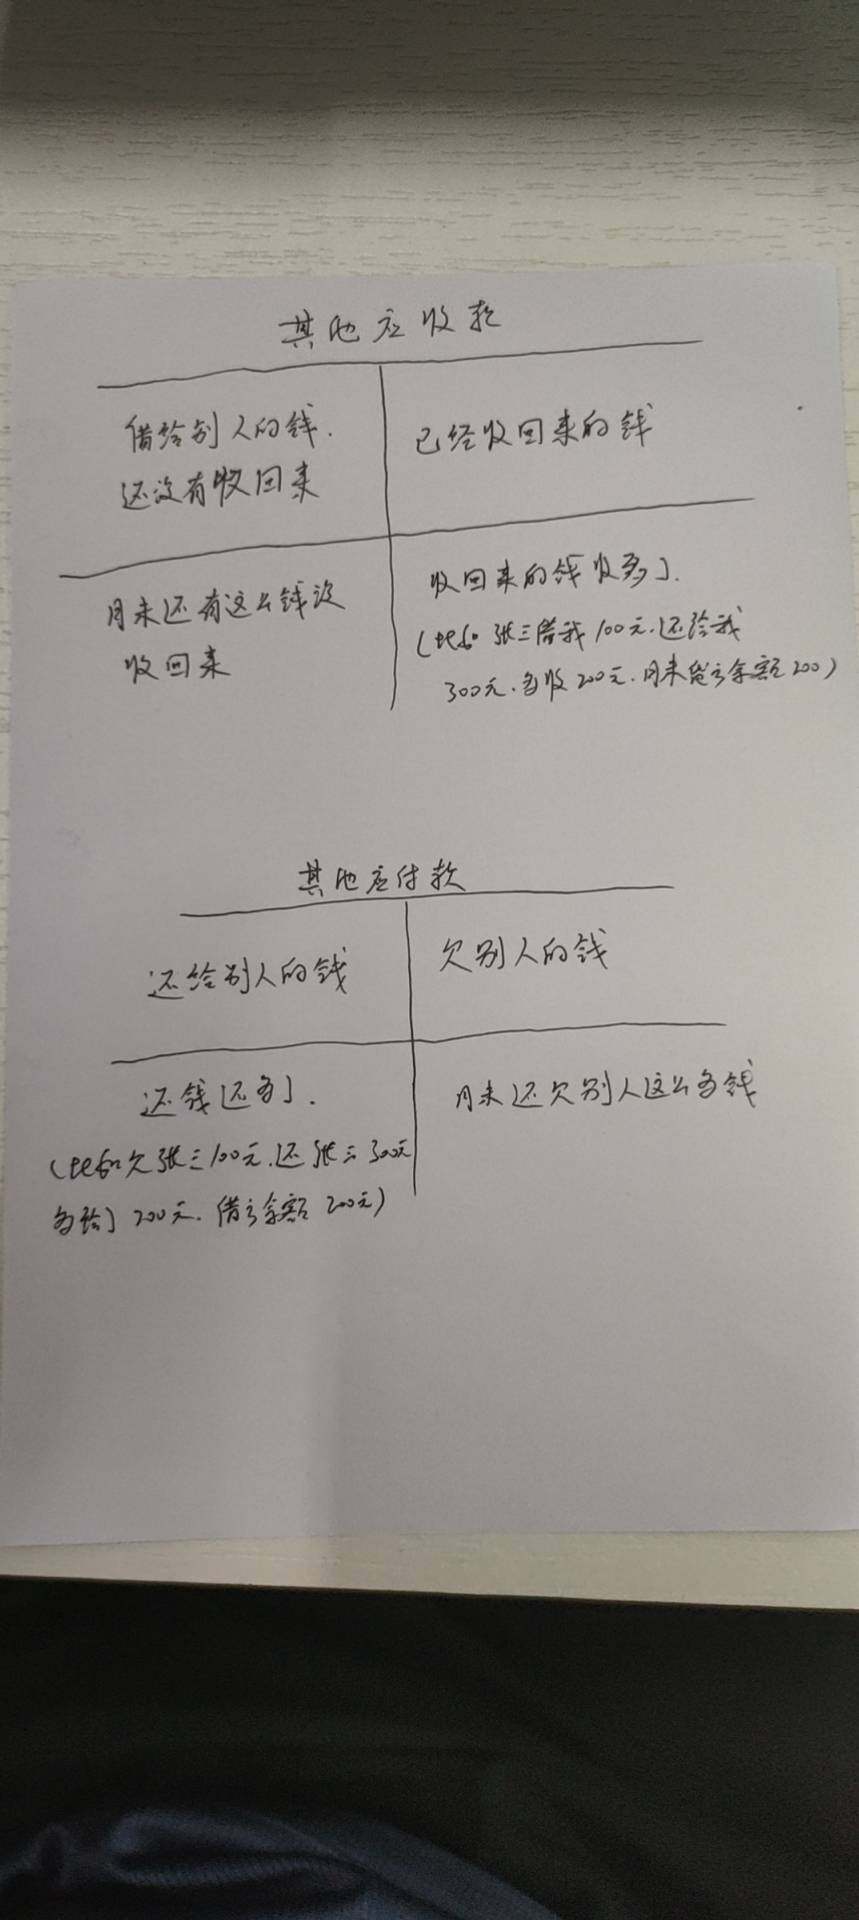 其他应收款
借给别人的钱.
还没有收回来
已经收回来的钱
月末还有这么钱没
收回来
收回来的钱收多了.
(比如 张三借我100元.还给我
300元.多收200元.月末贷方余额200)
其他应付款
还给别人的钱
欠别人的钱
还钱还多了.
(比如欠张三100元.还张三300元
多给了200元. 借方余额200元)
月末还欠别人这么多钱